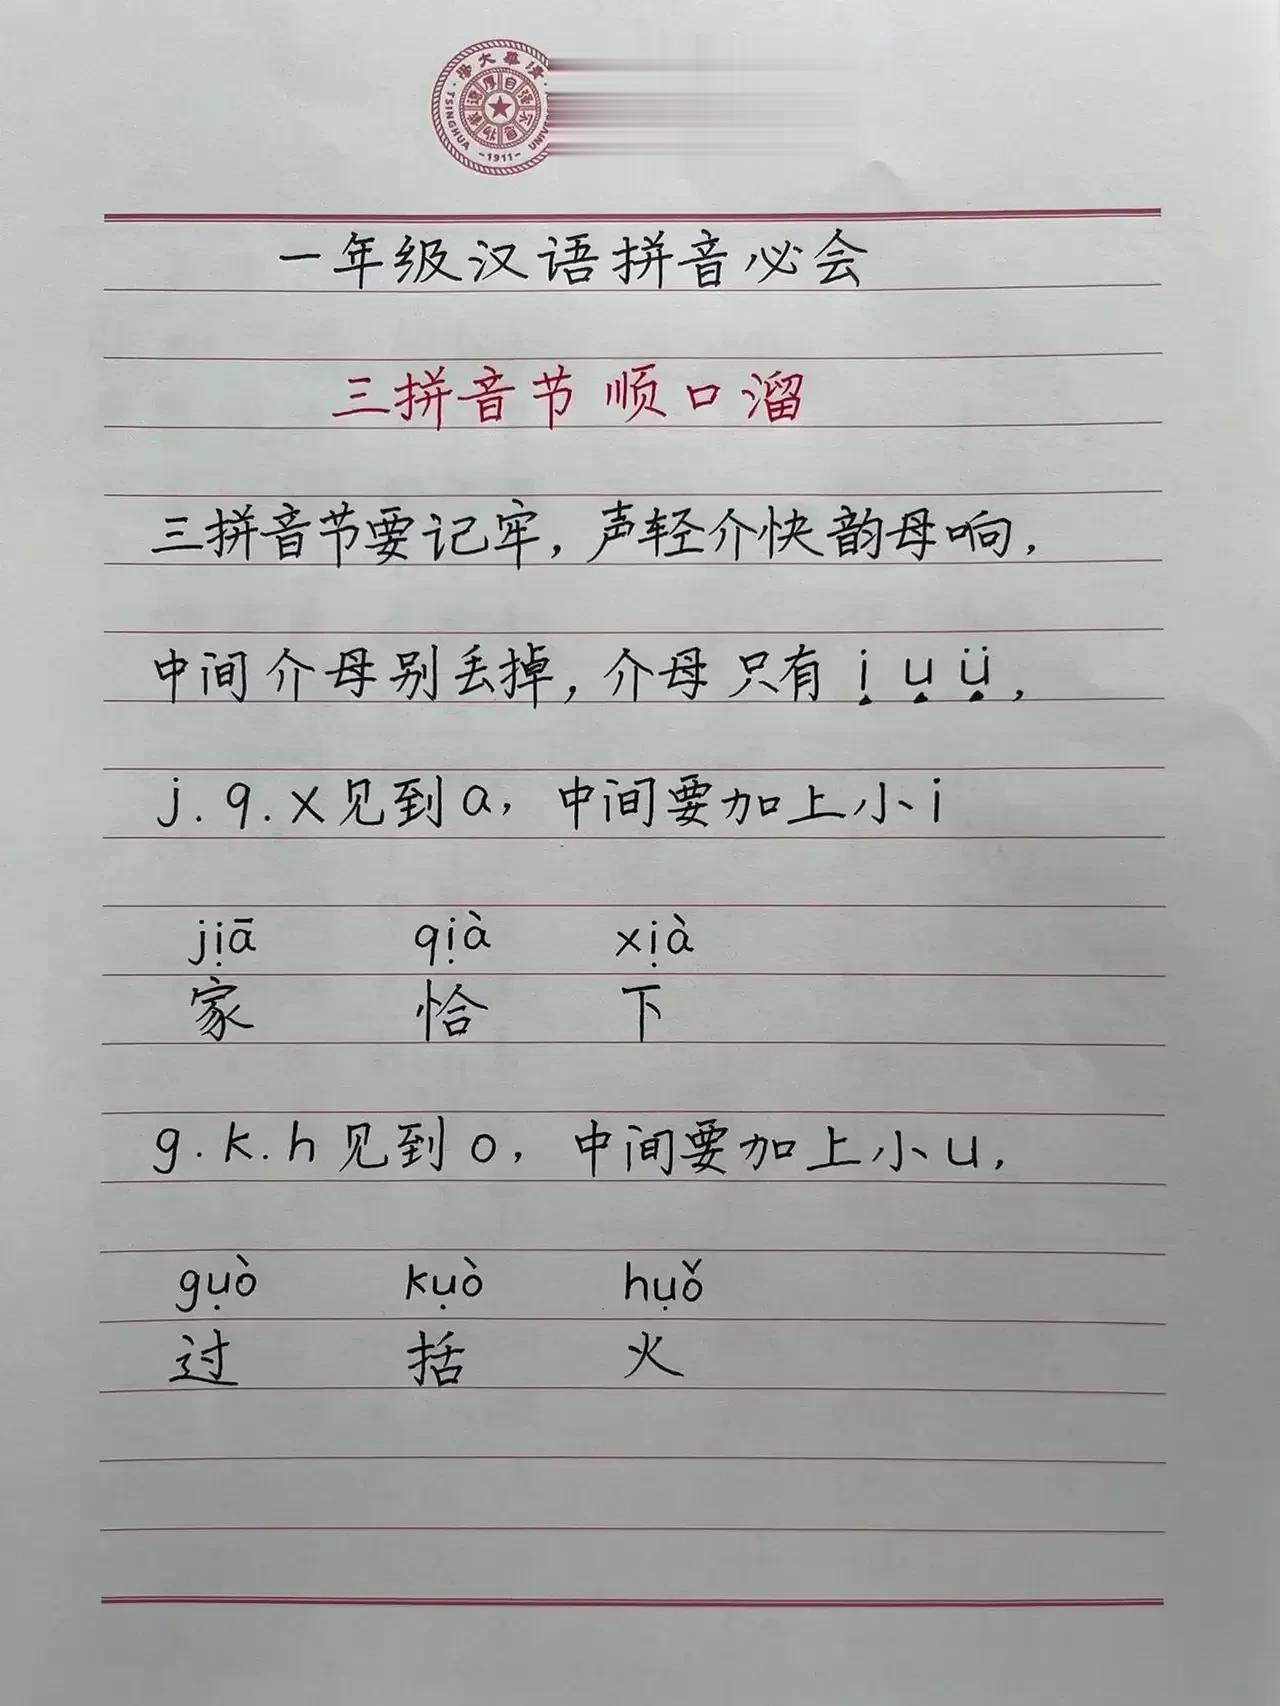 清華大學
TSINGHUA UNIVE
-1911-
自强不息
厚德載物
一年级汉语拼音必会
三拼音节顺口溜
三拼音节要记牢，声轻介快韵母响，
中间介母别丢掉，介母只有 i u ü，
j.q.x见到a，中间要加上小i
jiā qià xià
家 恰 下
g.k.h见到o，中间要加上小u，
guò kuò huǒ
过 括 火